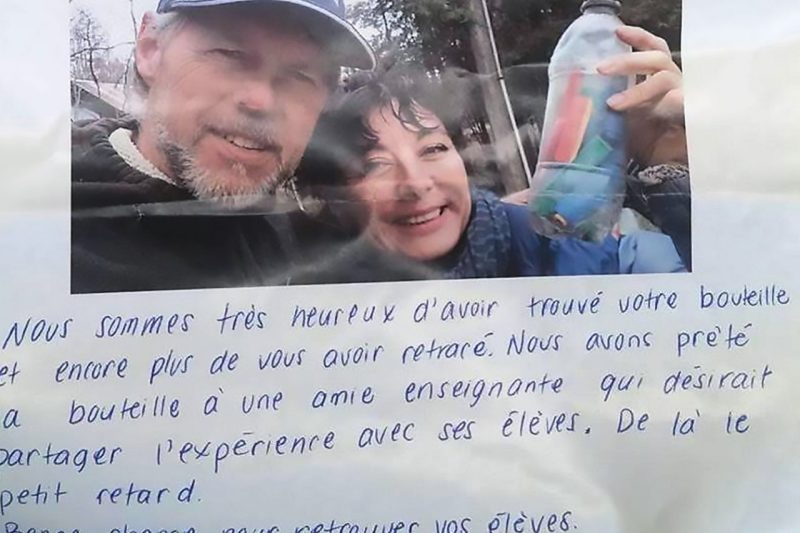 Nous sommes très heureux d'avoir trouvé votre bouteille
et encore plus de vous avoir retracé. Nous avons prêté
a bouteille à une amie enseignante qui désirait
partager l'expérience avec ses élèves. De là le
petit retard.
Bonne chance pour retrouver vos élèves.